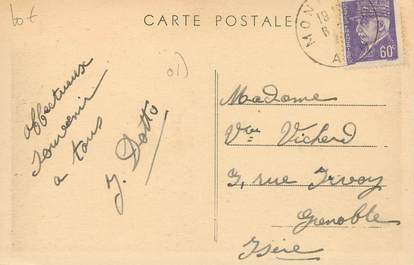 10 €
CARTE POSTALE
MON
19
A
60c
01)
affectueux
souvenir
a tous
J. Dotto
Madame
Vve Vichard
3, rue Irvoy
Grenoble
Isère